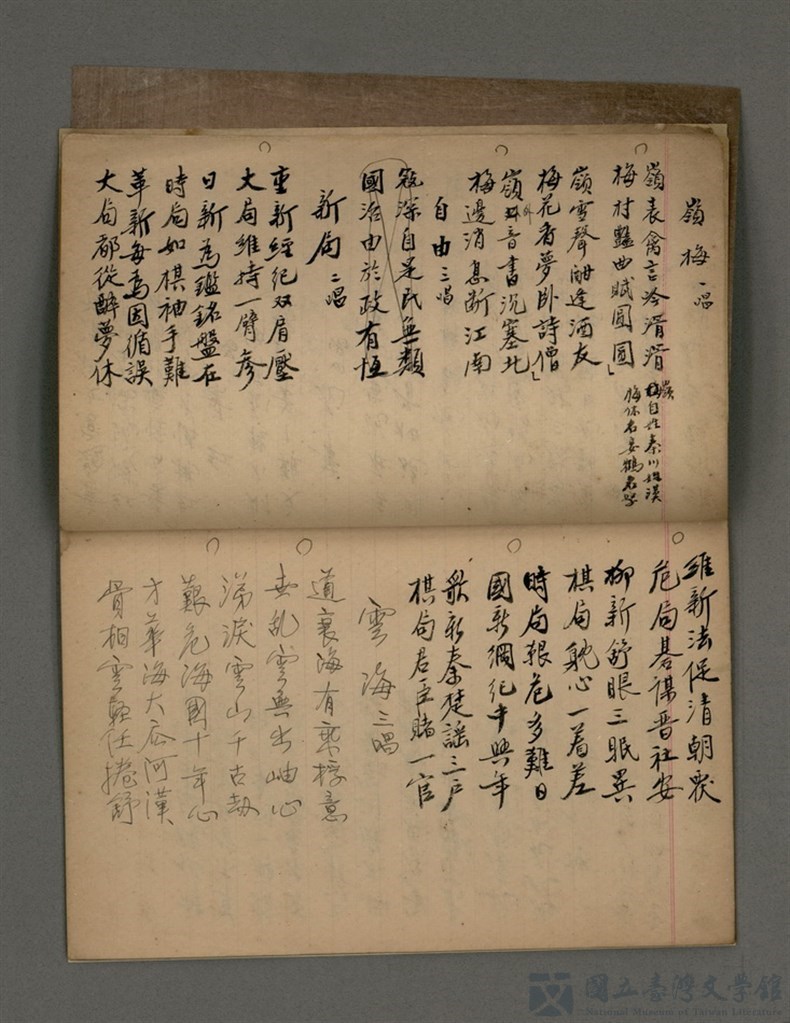 嶺梅 一唱
嶺表禽言冷滑滑
梅村豔曲賦圓圓」
嶺雪聲酣逢酒友
梅花香夢臥詩僧」
嶺外音書沉塞北
梅邊消息斷江南
嶺自姓秦川姓漢
梅休名妾鶴名
自由 三唱
冤深自是民無類
國治由於政有恆
新局 二唱
重新經紀双肩壓
大局維持一臂參
日新為鑑銘盤在
時局如棋袖手難
革新每為因循誤
大局都從醉夢休
維新法促清朝
危局碁謀晉社安
柳新舒眼三眠異
棋局耽心一着差
時局艱危多難日
國新綱紀中興年
眾新秦楚謠三戶
棋局君臣賭一官
雲海 三唱
道衰海有乘桴意
世亂雲無出岫心
涕淚雲山千古劫
艱危海國十年心
才華海大瓜河漢
骨相雲任捲舒
國立臺灣文學館
National Museum of Taiwan Literature